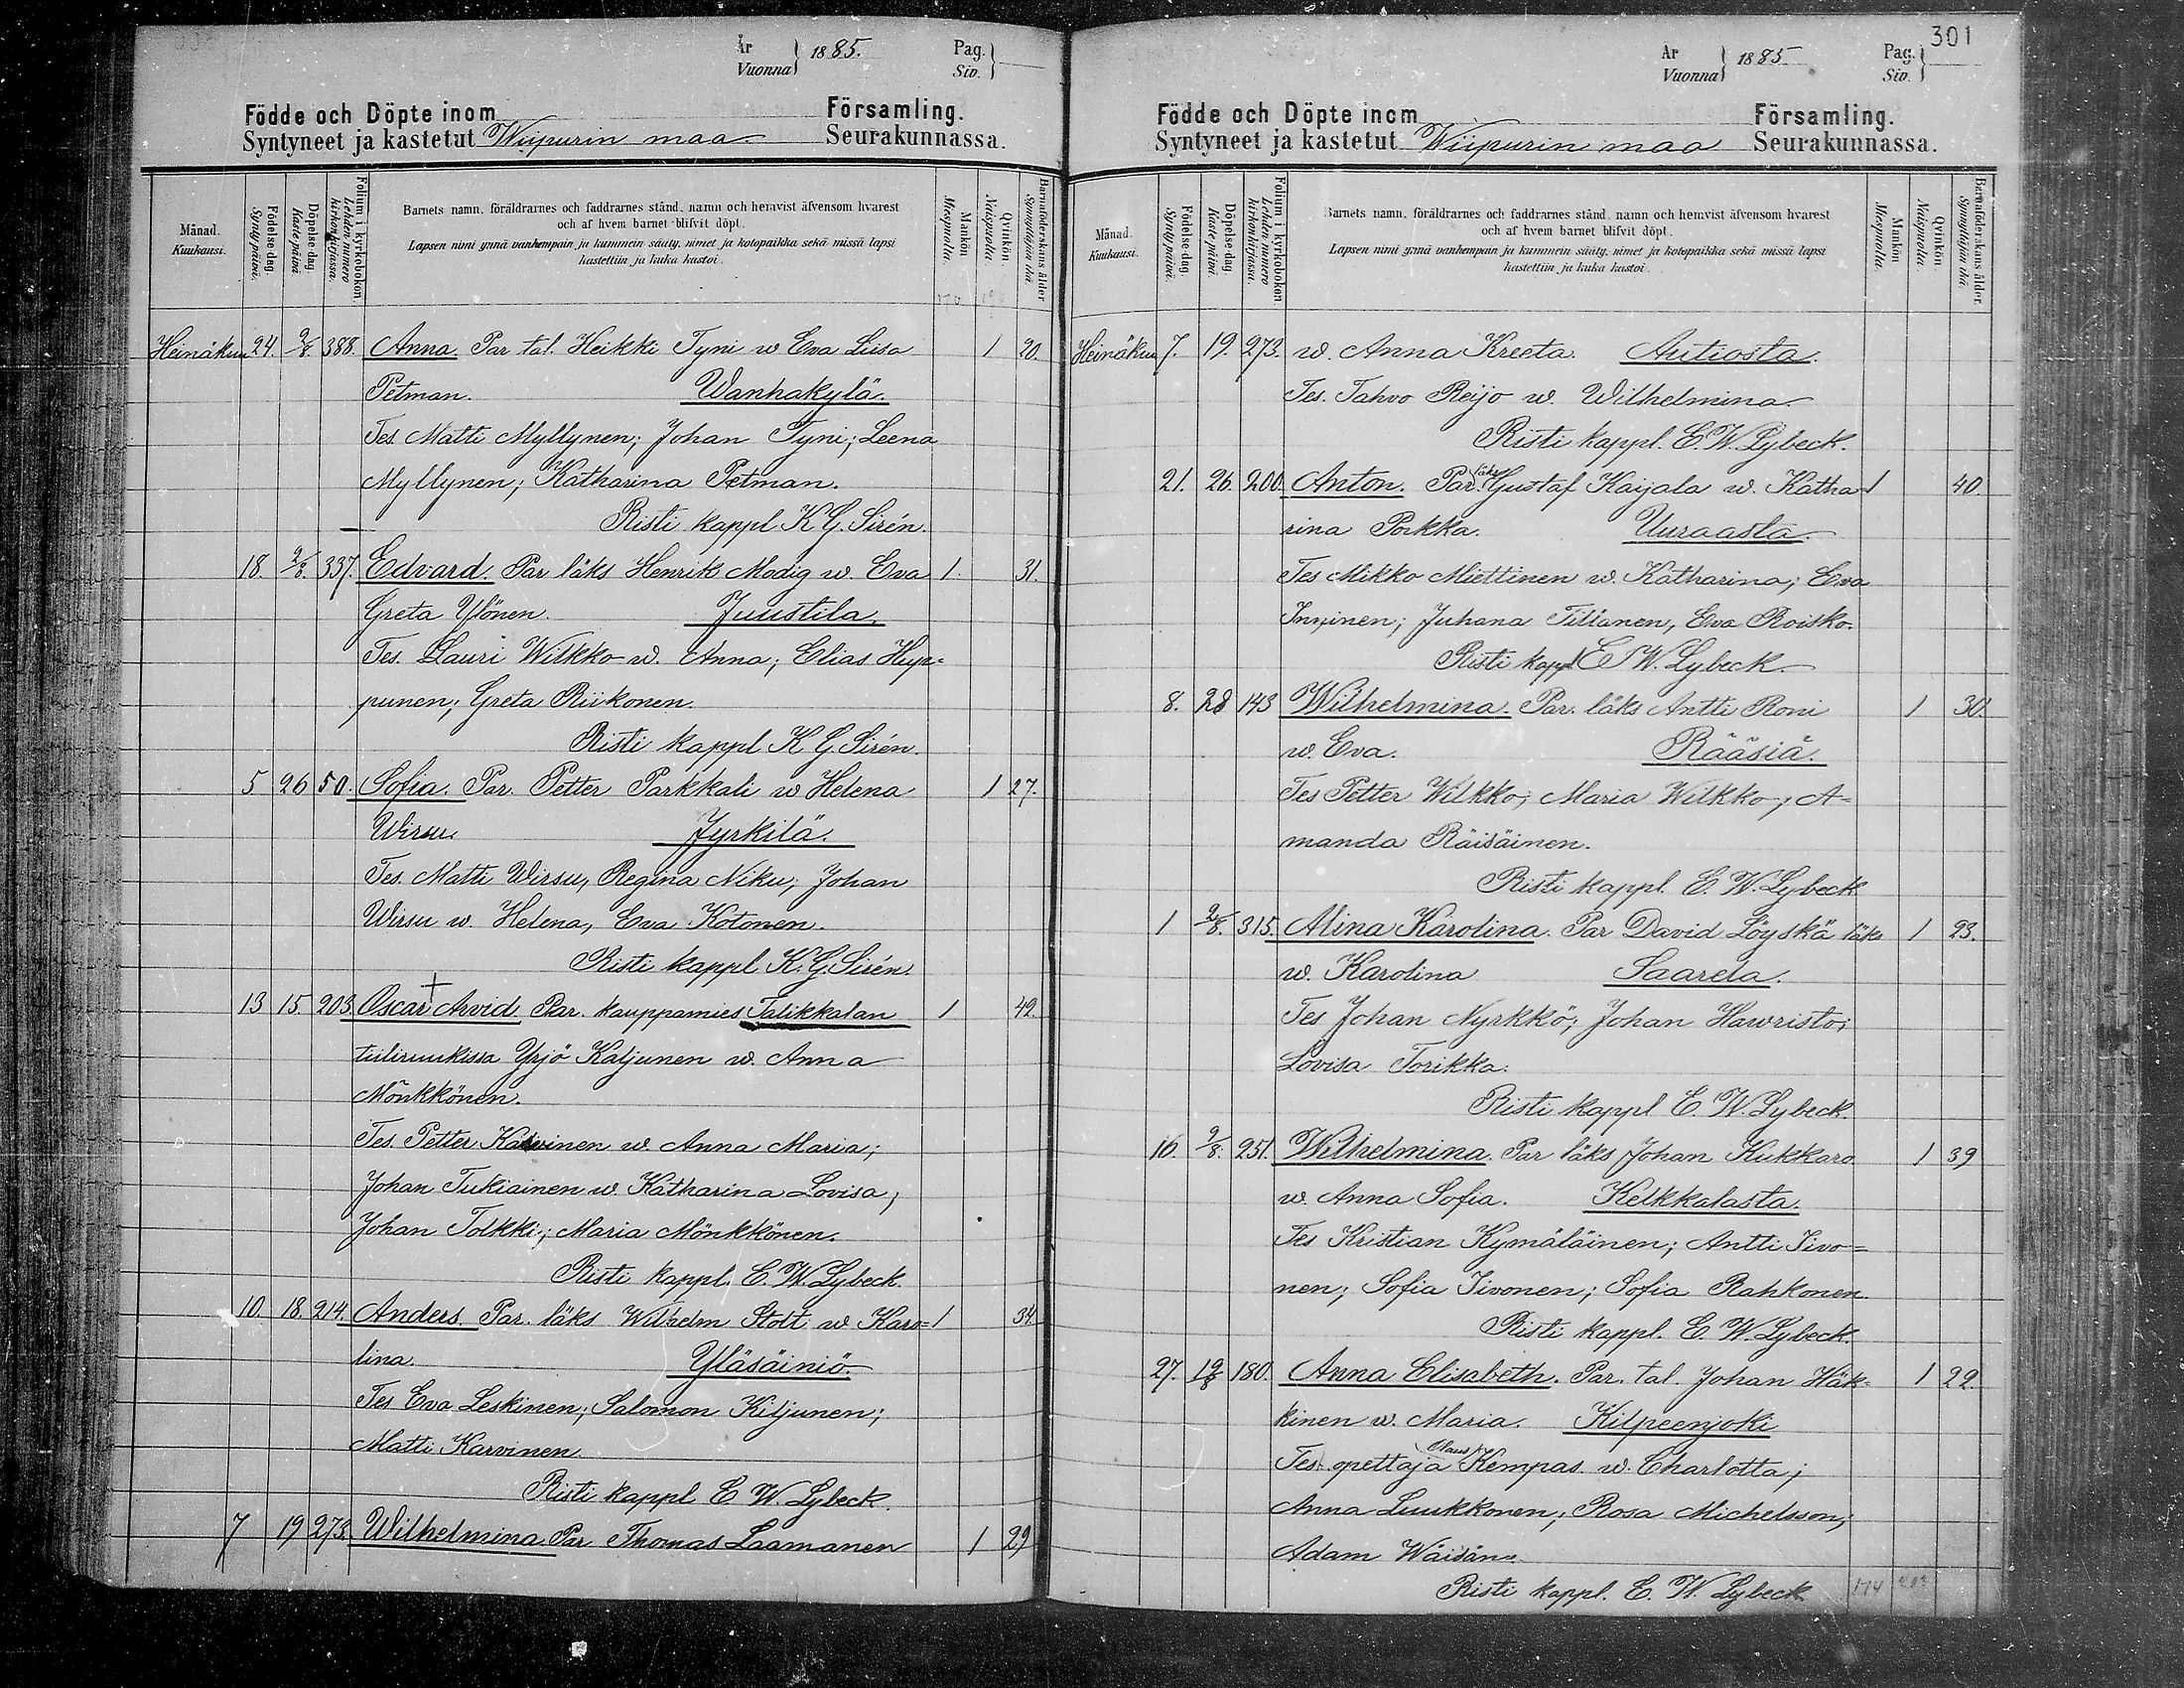 År
Vuonna } 1885.
Pag.
Siv. }
Födde och Döpte inom Församling.
Syntyneet ja kastetut Wiipurin maa Seurakunnassa.
Månad. Kuukausi.
Födelse-dag. Syntypäivä.
Döpelse-dag. Kastepäivä.
Folium i kyrkoboken. Lehden numero kirkonkirjassa.
Barnets namn, föräldrarnes och faddrarnes stånd, namn och hemvist äfvensom hvarest
och af hvem barnet blifvit döpt.
Lapsen nimi ynnä vanhempain ja kummein sääty, nimet ja kotopaikka sekä missä lapsi
kastettiin ja kuka kastoi.
Mankön. Miespuolia.
Qvinkön. Naispuolia.
Barnaföderskans ålder. Synnyttäjän ikä.
Heinäkuu 24. 2/8. 388. Anna. Par tal. Heikki Tyni w Eva Liisa 1 20.
Petman. Wanhakylä.
Tes. Matti Myllynen; Johan Tyni; Leena
Myllynen; Katharina Petman.
Risti kappl K G. Sirén.
18. 2/8. 337. Edvard. Par läks Henrik Modig w. Eva 1. 31.
Greta Ylönen. Juustila.
Tes. Lauri Wilkko w. Anna; Elias Hup=
punen; Greta Riikonen.
Risti kappl K G. Sirén.
5 26 50. Sofia. Par. Petter Parkkali w Helena 1 27.
Wirsu. Jyrkilä.
Tes. Matti Wirsu, Regina Niku; Johan
Wirsu w. Helena, Eva Kotonen.
Risti kappl K. G. Sirén.
13 15 203. Oscar Arvid. Par. kauppamies Talikkalan 1 42
tiiliruukissa Yrjö Kaljunen w. Anna
Mönkkönen.
Tes. Petter Karvinen w. Anna Maria;
Johan Tukiainen w. Katharina Lovisa,
Johan Tolkki; Maria Mönkkönen.
Risti kappl. E. W. Lybeck.
10. 18. 214. Anders. Par. läks Wilhelm Stolt w Karo= 1 34
lina. Yläsäiniö.
Tes Eva Leskinen; Salomon Kiljunen;
Matti Karvinen.
Risti kappl E W. Lybeck.
7 19 273. Wilhelmina. Par Thomas Laamanen 1 29
301
År
Vuonna } 1885
Pag.
Siv. }
Födde och Döpte inom Församling.
Syntyneet ja kastetut Wiipurin maa Seurakunnassa.
Månad. Kuukausi.
Födelse-dag. Syntypäivä.
Döpelse-dag. Kastepäivä.
Folium i kyrkoboken. Lehden numero kirkonkirjassa.
Barnets namn, föräldrarnes och faddrarnes stånd, namn och hemvist äfvensom hvarest
och af hvem barnet blifvit döpt.
Lapsen nimi ynnä vanhempain ja kummein sääty, nimet ja kotopaikka sekä missä lapsi
kastettiin ja kuka kastoi.
Mankön. Miespuolia.
Qvinkön. Naispuolia.
Barnaföderskans ålder. Synnyttäjän ikä.
Heinäkuu 7. 19. 273. w. Anna Kreeta. Autiosta.
Tes. Tahvo Reijo w. Wilhelmina.
Risti kappl. E. W. Lybeck.
21. 26. 200. Anton. Par. läks Gustaf Kaijala w. Katha 1 40.
rina Porkka. Uuraasta.
Tes Mikko Miettinen w. Katharina; Eva
Inninen; Juhana Tiltanen, Eva Roisko.
Risti kappl E W. Lybeck.
8. 28 143 Wilhelmina. Par. läks Antti Roni 1 30.
w. Eva. Rääsiä.
Tes Petter Wilkko; Maria Wilkko; A=
manda Räisäinen.
Risti kappl. E. W. Lybeck
1 2/8. 315. Alina Karolina. Par David Löyskä läks 1 23.
w. Karolina Saarela.
Tes Johan Nyrkkö; Johan Hawristo;
Lovisa Torikka.
Risti kappl E. W. Lybeck.
16. 2/8. 251. Wilhelmina. Par läks Johan Kukkaro 1 39
w. Anna Sofia. Kelkkalasta.
Tes Kristian Kymäläinen; Antti Iivo=
nen; Sofia Iivonen; Sofia Rahkonen
Risti kappl. E. W. Lybeck.
27. 12/8 180. Anna Elisabeth. Par. tal. Johan Häk= 1 22.
kinen w. Maria. Kilpeenjoki
Tes. opettaja Claus Kempas w. Charlotta;
Anna Luukkonen; Rosa Michelsson;
Adam Wäisän.
Risti kappl. E. W. Lybeck 174